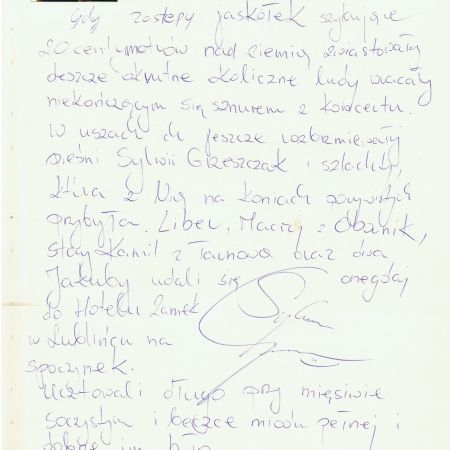 Gdy zastępy jaskółek szybujące
20 centymetrów nad ziemią zwiastowały
deszcze okrutne okoliczne ludy wracały
niekończącym się sznurem z koncertu.
W uszach ich jeszcze rozbrzmiewały
pieśni Sylwii Grzeszczak i szlachty,
która z Nią na koniach
przybyła. Liber, Maciej z Obornik,
stary Kamil z Tarnowa oraz dwa
Jakuby udali się onegdaj
do Hotelu Zamek
w Lublińcu na
spoczynek.
Ucztowali długo przy mięsiwie
soczystym i beczce miodu pełnej i
dobrze im było